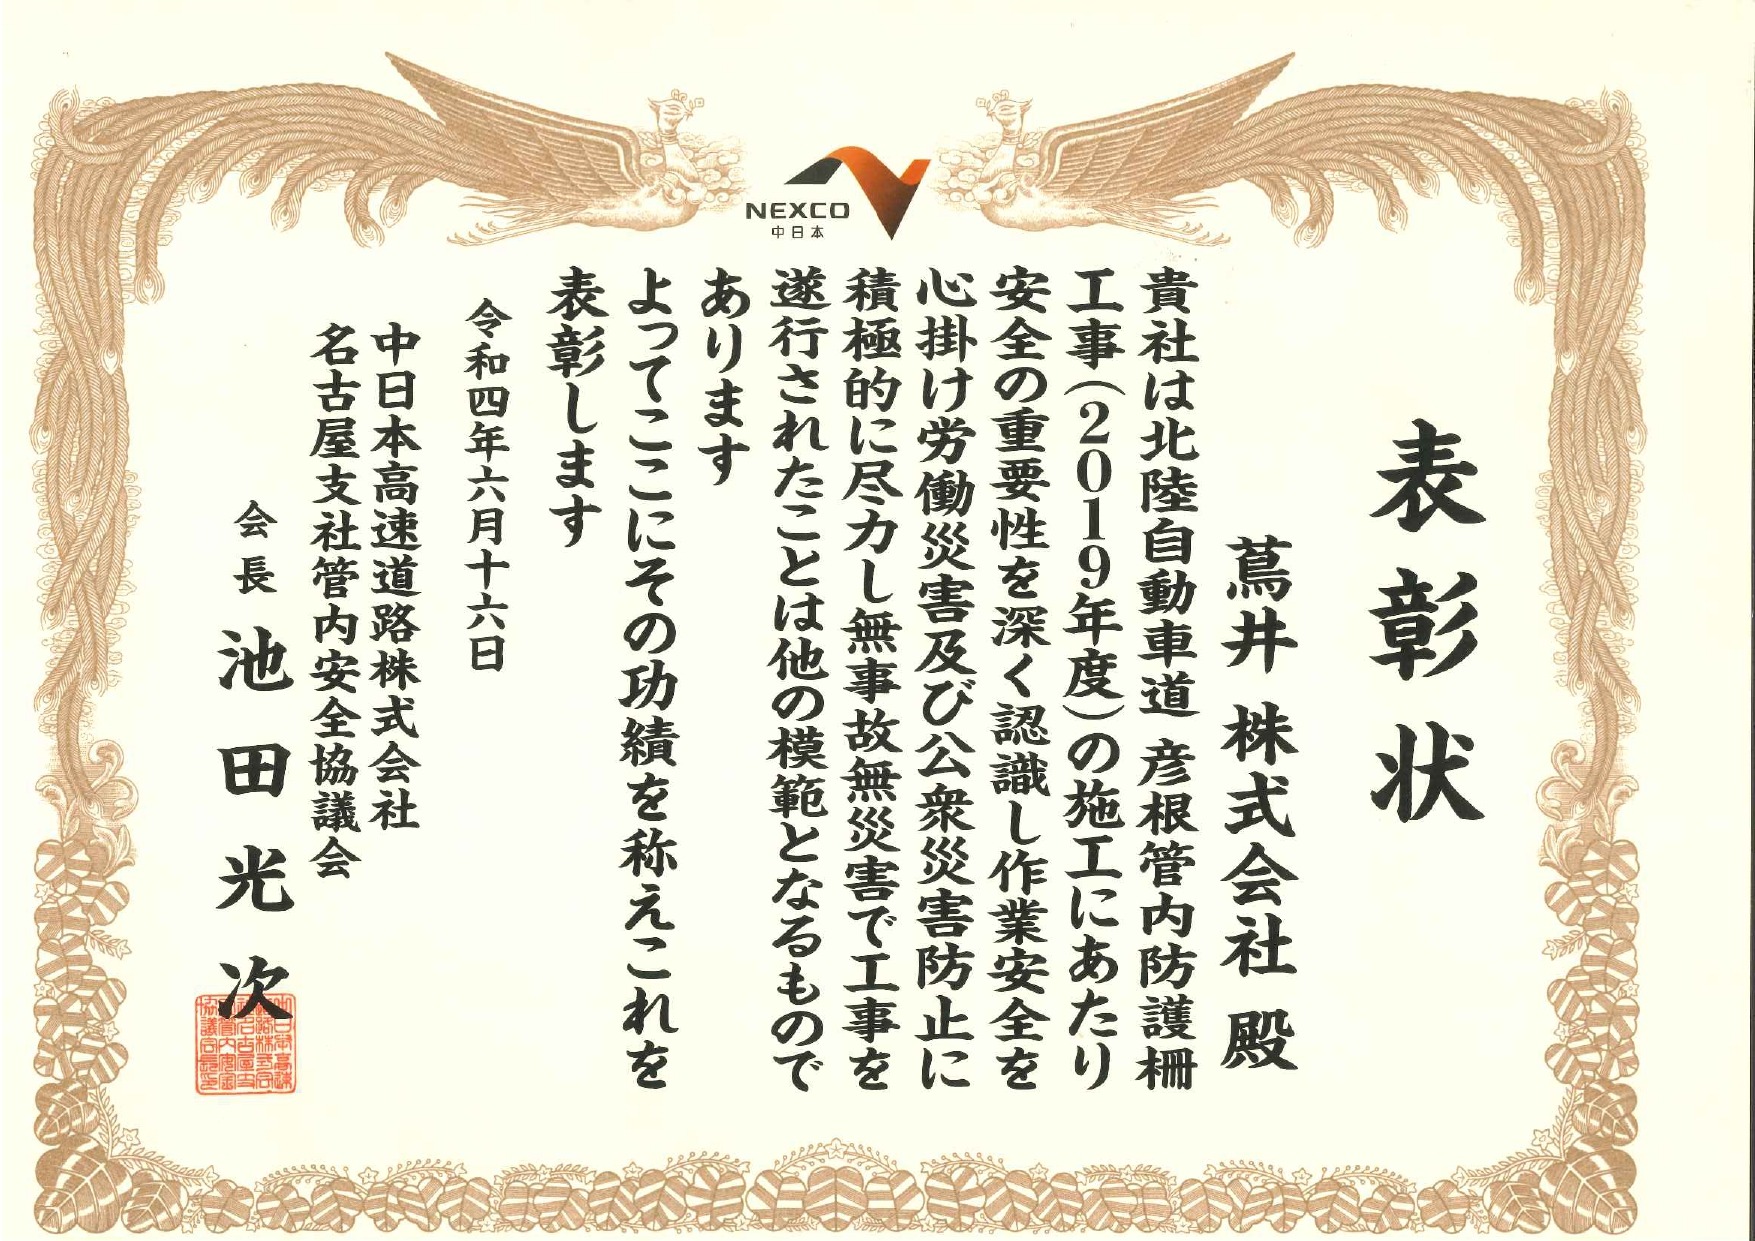 NEXCO
中日本
表彰状
蔦井 株式会社 殿
貴社は北陸自動車道 彦根管内防護柵
工事(2019年度)の施工にあたり
安全の重要性を深く認識し作業安全を
心掛け労働災害及び公衆災害防止に
積極的に尽力し無事故無災害で工事を
遂行されたことは他の模範となるもので
あります
よってここにその功績を称えこれを
表彰します
令和四年六月十六日
中日本高速道路株式会社
名古屋支社管内安全協議会
会長 池田光次